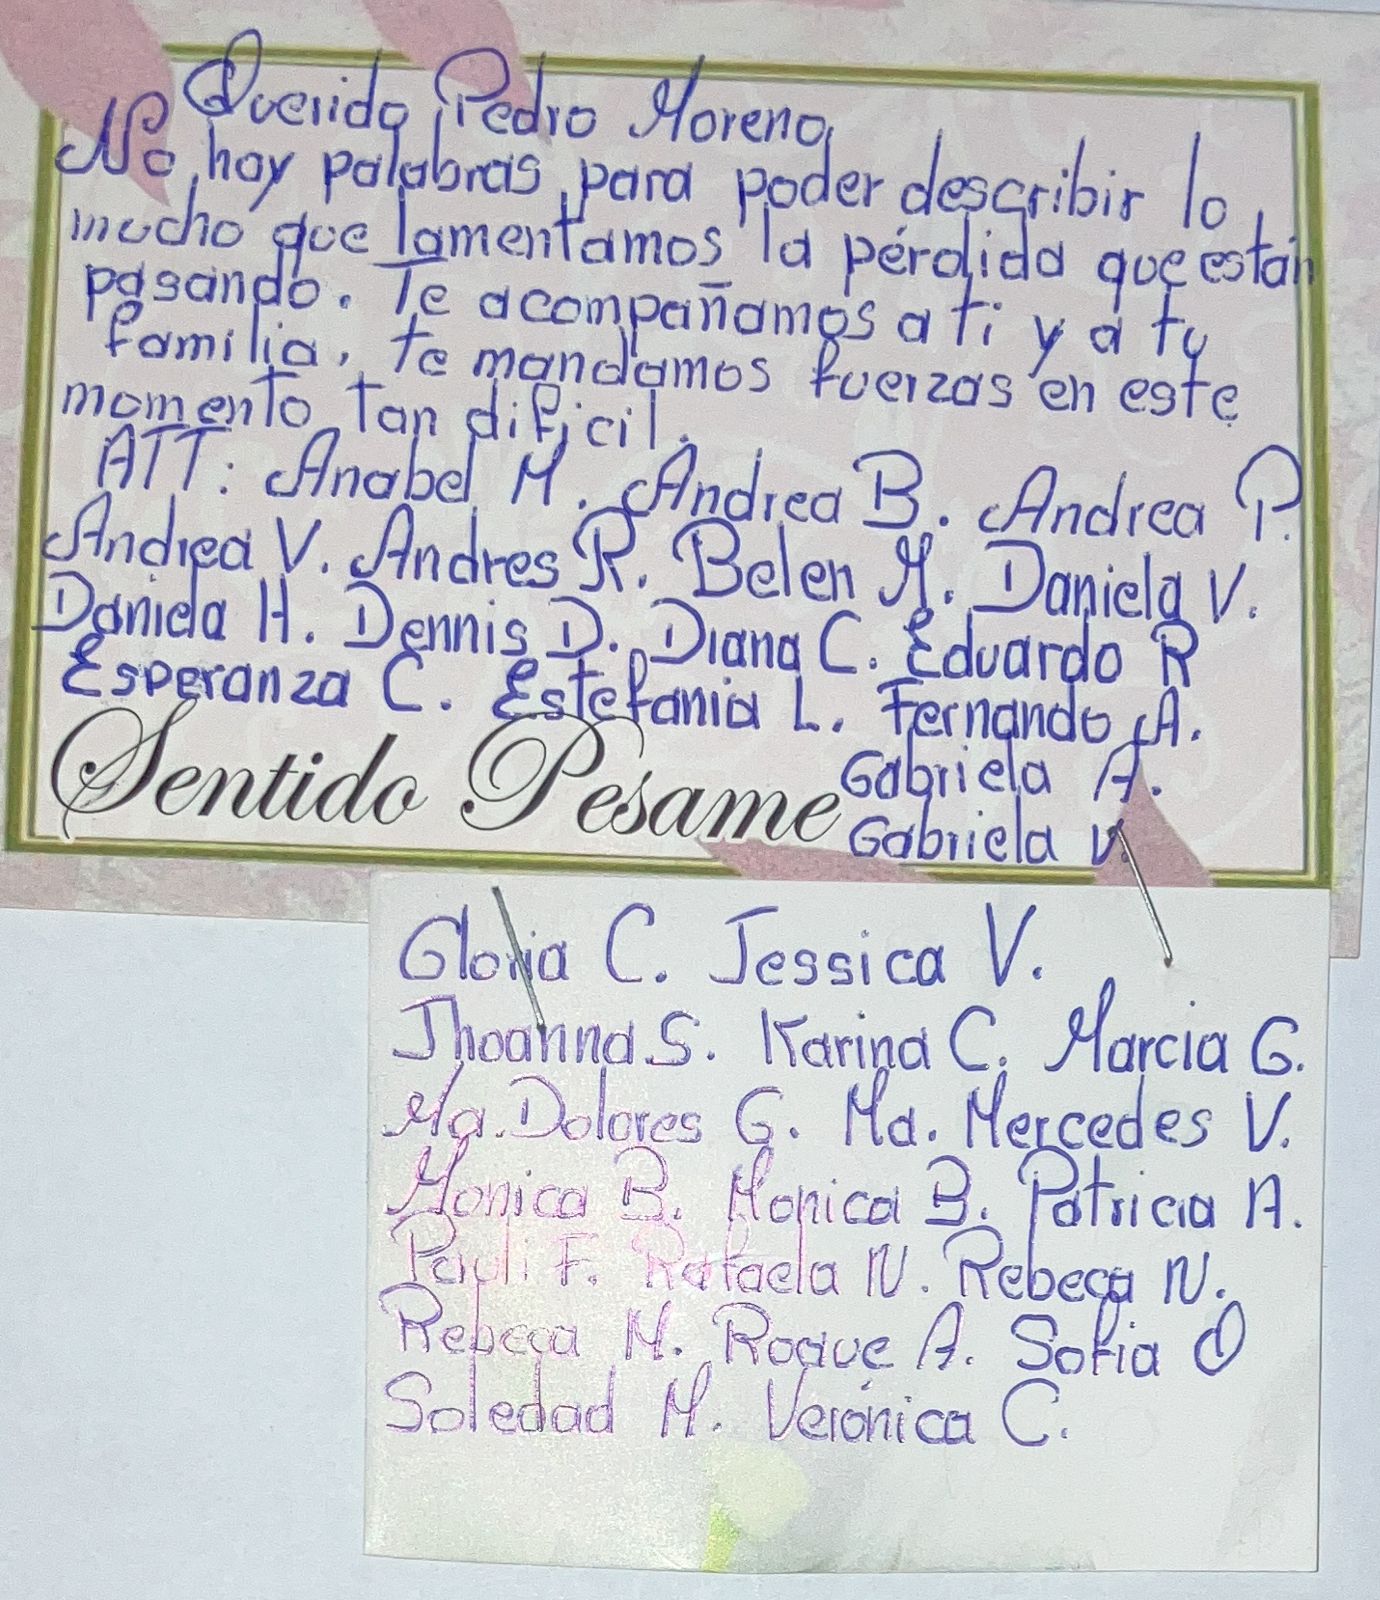 Querido Pedro Moreno,
No hay palabras para poder describir lo
mucho que lamentamos la pérdida que están
pasando. Te acompañamos a ti y a tu
familia, te mandamos fuerzas en este
momento tan dificil.
ATT: Anabel M. Andrea B. Andrea P.
Andrea V. Andres R. Belen M. Daniela V.
Daniela H. Dennis D. Diana C. Eduardo R
Esperanza C. Estefania L. Fernando A.
Gabriela A.
Sentido Pesame
Gabriela V.
Gloria C. Jessica V.
Jhoanna S. Karina C. Marcia G.
Ma. Dolores G. Ma. Mercedes V.
Monica B. Monica B. Patricia A.
Pauli F. Rafaela N. Rebeca N.
Rebeca M. Roque A. Sofia O
Soledad M. Verónica C.